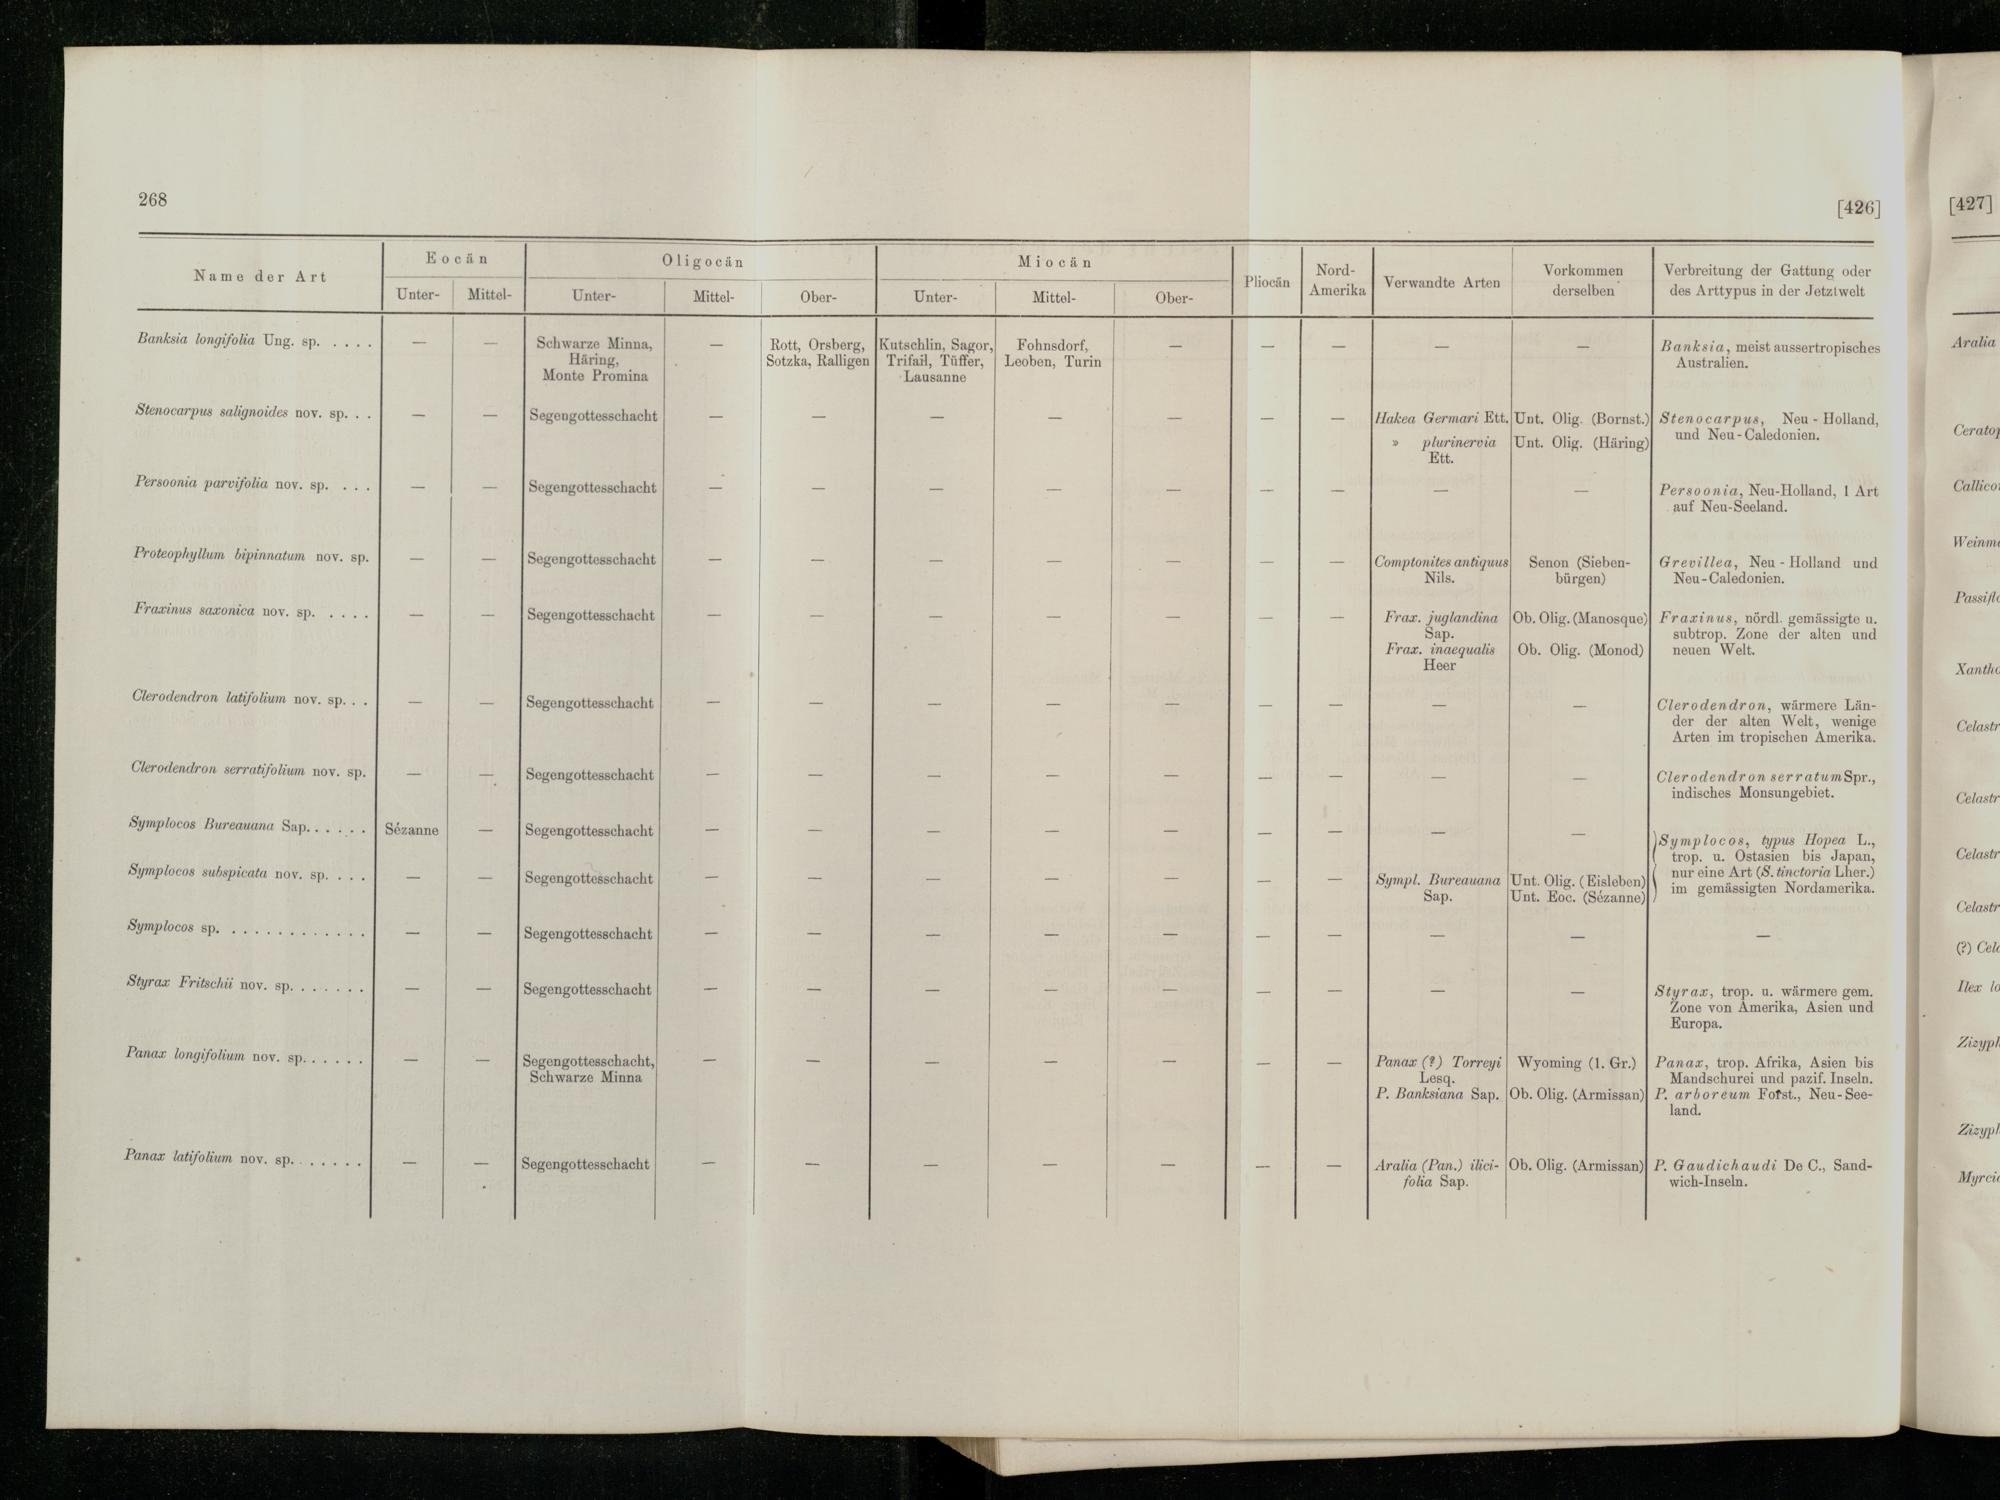 268
[426]
[427]
Name der Art
Eocän
Oligocän
Miocän
Pliocän
Nord-
Amerika
Verwandte Arten
Vorkommen
derselben
Verbreitung der Gattung oder
des Arttypus in der Jetztwelt
Unter-
Mittel-
Unter-
Mittel-
Ober-
Unter-
Mittel-
Ober-
Banksia longifolia Ung. sp. . . . .
—
—
Schwarze Minna,
Häring,
Monte Promina
—
Rott, Orsberg,
Sotzka, Ralligen
Kutschlin, Sagor,
Trifail, Tüffer,
Lausanne
Fohnsdorf,
Leoben, Turin
—
—
—
—
—
Banksia, meist aussertropisches
Australien.
Stenocarpus salignoides nov. sp. . .
—
—
Segengottesschacht
—
—
—
—
—
—
—
Hakea Germari Ett.
» plurinervia
Ett.
Unt. Olig. (Bornst.)
Unt. Olig. (Häring)
Stenocarpus, Neu-Holland,
und Neu-Caledonien.
Persoonia parvifolia nov. sp. . . .
—
—
Segengottesschacht
—
—
—
—
—
—
—
—
—
Persoonia, Neu-Holland, 1 Art
auf Neu-Seeland.
Proteophyllum bipinnatum nov. sp.
—
—
Segengottesschacht
—
—
—
—
—
—
—
Comptonites antiquus
Nils.
Senon (Sieben-
bürgen)
Grevillea, Neu-Holland und
Neu-Caledonien.
Fraxinus saxonica nov. sp. . . . .
—
—
Segengottesschacht
—
—
—
—
—
—
—
Frax. juglandina
Sap.
Frax. inaequalis
Heer
Ob. Olig. (Manosque)
Ob. Olig. (Monod)
Fraxinus, nördl. gemässigte u.
subtrop. Zone der alten und
neuen Welt.
Clerodendron latifolium nov. sp. . .
—
—
Segengottesschacht
—
—
—
—
—
—
—
—
—
Clerodendron, wärmere Län-
der der alten Welt, wenige
Arten im tropischen Amerika.
Clerodendron serratifolium nov. sp.
—
—
Segengottesschacht
—
—
—
—
—
—
—
—
—
Clerodendron serratum Spr.,
indisches Monsungebiet.
Symplocos Bureauana Sap. . . . . .
Sézanne
—
Segengottesschacht
—
—
—
—
—
—
—
—
—
Symplocos, typus Hopea L.,
trop. u. Ostasien bis Japan,
nur eine Art (S. tinctoria Lher.)
im gemässigten Nordamerika.
Symplocos subspicata nov. sp. . . .
—
—
Segengottesschacht
—
—
—
—
—
—
—
Sympl. Bureauana
Sap.
Unt. Olig. (Eisleben)
Unt. Eoc. (Sézanne)
Symplocos sp. . . . . . . . . . . . .
—
—
Segengottesschacht
—
—
—
—
—
—
—
—
—
—
Styrax Fritschii nov. sp. . . . . . .
—
—
Segengottesschacht
—
—
—
—
—
—
—
—
—
Styrax, trop. u. wärmere gem.
Zone von Amerika, Asien und
Europa.
Panax longifolium nov. sp. . . . . .
—
—
Segengottesschacht,
Schwarze Minna
—
—
—
—
—
—
—
Panax (?) Torreyi
Lesq.
P. Banksiana Sap.
Wyoming (1. Gr.)
Ob. Olig. (Armissan)
Panax, trop. Afrika, Asien bis
Mandschurei und pazif. Inseln.
P. arboreum Forst., Neu-See-
land.
Panax latifolium nov. sp. . . . . . .
—
—
Segengottesschacht
—
—
—
—
—
—
—
Aralia (Pan.) ilici-
folia Sap.
Ob. Olig. (Armissan)
P. Gaudichaudi De C., Sand-
wich-Inseln.
Aralia
Cerato
Callico
Weinm
Passifl
Xantho
Celastr
Celastr
Celastr
Celastr
(?) Cela
Ilex lo
Zizyph
Zizyph
Myrci